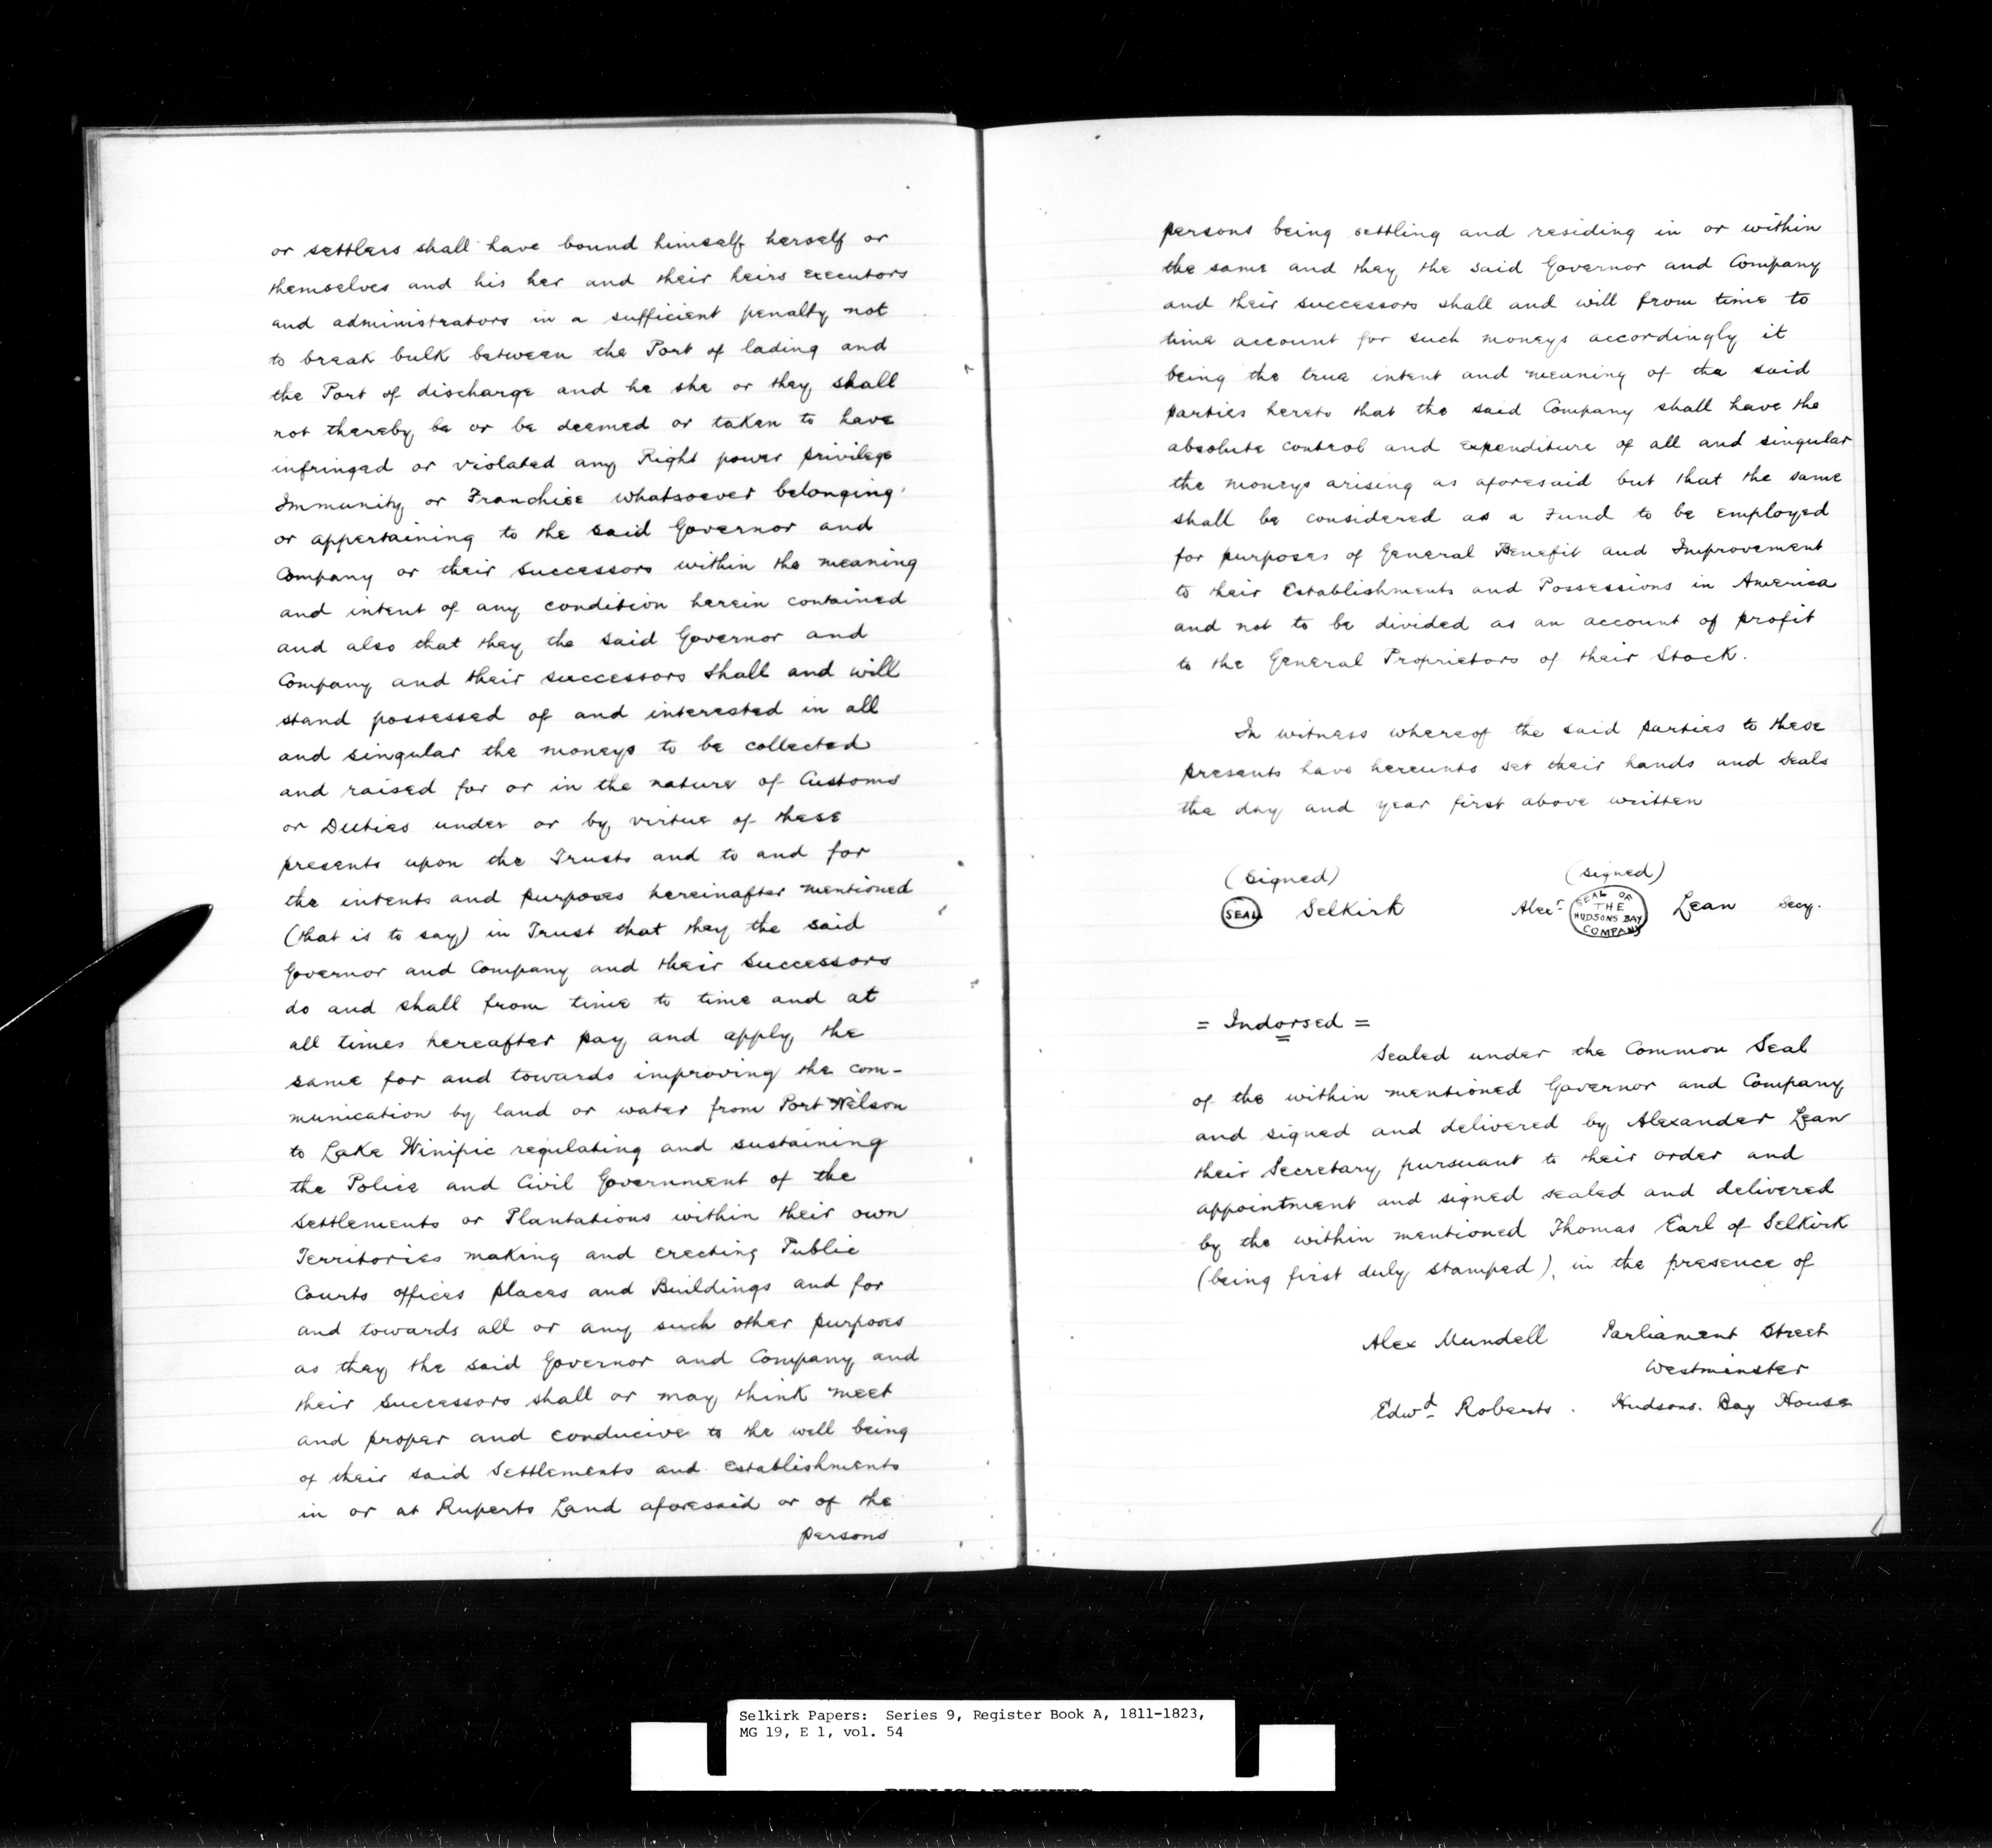 or settlers shall have bound himself herself or
themselves and his her and their heirs executors
and administrators in a sufficient penalty not
to break bulk between the Port of lading and
the Port of discharge and he she or they shall
not thereby be or be deemed or taken to have
infringed or violated any Right power privilege
Immunity or Franchise whatsoever belonging
or appertaining to the said Governor and
Company or their successors within the meaning
and intent of any condition herein contained
and also that they the said Governor and
Company and their successors shall and will
stand possessed of and interested in all
and singular the moneys to be collected
and raised for or in the nature of Customs
or Duties under or by virtue of these
presents upon the Trusts and to and for
the intents and purposes hereinafter mentioned
(that is to say) in Trust that they the said
Governor and Company and their Successors
do and shall from time to time and at
all times hereafter pay and apply the
same for and towards improving the com-
munication by land or water from Port Nelson
to Lake Winipic regulating and sustaining
the Police and Civil Government of the
Settlements or Plantations within their own
Territories making and erecting Public
Courts offices places and Buildings and for
and towards all or any such other purposes
as they the said Governor and Company and
their Successors shall or may think meet
and proper and conducive to the well being
of their said Settlements and establishments
in or at Ruperts Land aforesaid or of the
persons
persons being settling and residing in or within
the same and they the said Governor and Company
and their successors shall and will from time to
time account for such moneys accordingly it
being the true intent and meaning of the said
parties hereto that the said Company shall have the
absolute control and expenditure of all and singular
the moneys arising as aforesaid but that the same
shall be considered as a Fund to be employed
for purposes of General Benefit and Improvement
to their Establishments and Possessions in America
and not to be divided as an account of profit
to the General Proprietors of their Stock.
In witness whereof the said parties to these
presents have hereunto set their hands and seals
the day and year first above written
(signed) (signed)
SEAL Selkirk Alexr SEAL OF THE HUDSONS BAY COMPANY Lean Secy.
= Indorsed =
Sealed under the Common Seal
of the within mentioned Governor and Company
and signed and delivered by Alexander Lean
their Secretary pursuant to their order and
appointment and signed sealed and delivered
by the within mentioned Thomas Earl of Selkirk
(being first duly stamped), in the presence of
Alex Mundell Parliament Street
Westminster
Edwd Roberts. Hudsons. Bay House
Selkirk Papers: Series 9, Register Book A, 1811-1823,
MG 19, E 1, vol. 54